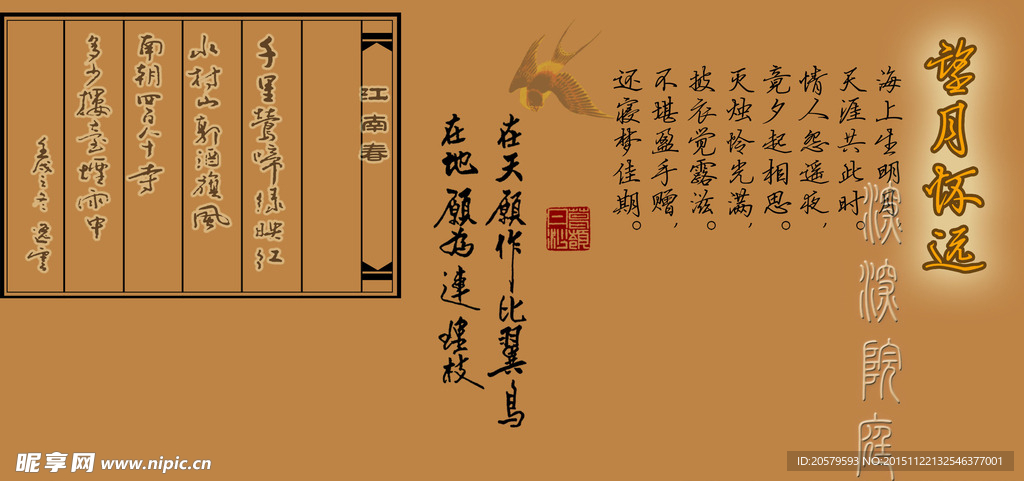 望月怀远
海上生明月，
天涯共此时。
情人怨遥夜，
竟夕起相思。
灭烛怜光满，
披衣觉露滋。
不堪盈手赠，
还寝梦佳期。
深深院庭
在天願作比翼鳥
在地願為連理枝
江南春
千里鶯啼綠映紅
水村山郭酒旗風
南朝四百八十寺
多少樓臺煙雨中
昵享网 www.nipic.cn
ID:20579593 NO:20151122132546377001